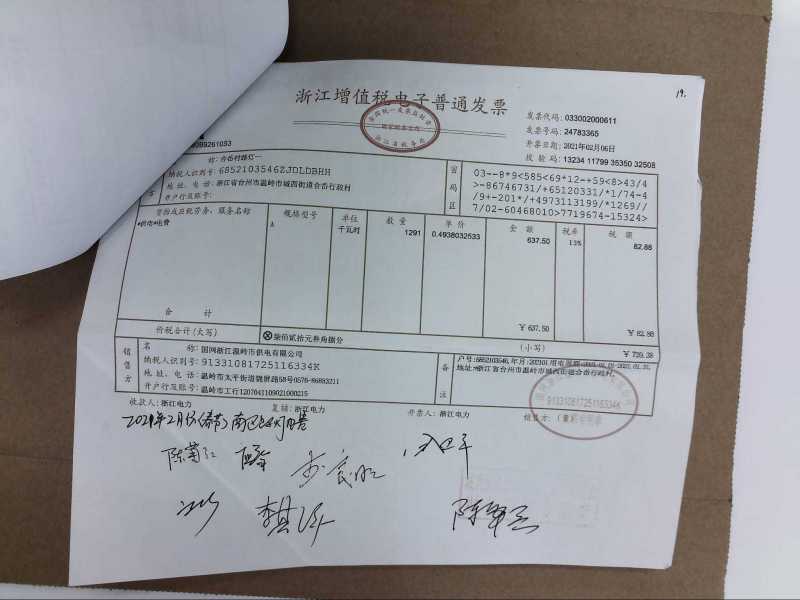 19.
浙江增值税电子普通发票
发票代码: 033002000611
发票号码: 24783365
开票日期: 2021年02月06日
校验码: 13234 11799 35350 32508
称: 合岙村路灯一
纳税人识别号: 6852103546ZJDLDBHH
地址、电话: 浙江省台州市温岭市城西街道合岙行政村
开户行及账号:
密码区
03--8*9<585<69*12-+59<8>43/4
>-86746731/+65120331/*1/74-4
/9+-201*/+4973113199/*1269//
7/02-60468010>7719674-15324>
货物或应税劳务、服务名称 规格型号 单位 数量 单价 金额 税率 税额
*供电*电费 千瓦时 1291 0.4938032533 637.50 13% 82.88
合计 ¥637.50 ¥82.88
价税合计(大写) ⊗柒佰贰拾元叁角捌分 (小写) ¥720.38
销售方
名称: 国网浙江温岭市供电有限公司
纳税人识别号: 91331081725116334K
地址、电话: 温岭市太平街道锦屏路58号0576-86883211
开户行及账号: 温岭市工行1207041109021000215
备注
户号:6852103546,年月:202101
地址:浙江省台州市温岭市城西街道合岙行政村,
91331081725116334K
收款人: 浙江电力 复核: 浙江电力 开票人: 浙江电力 销售方: (章)